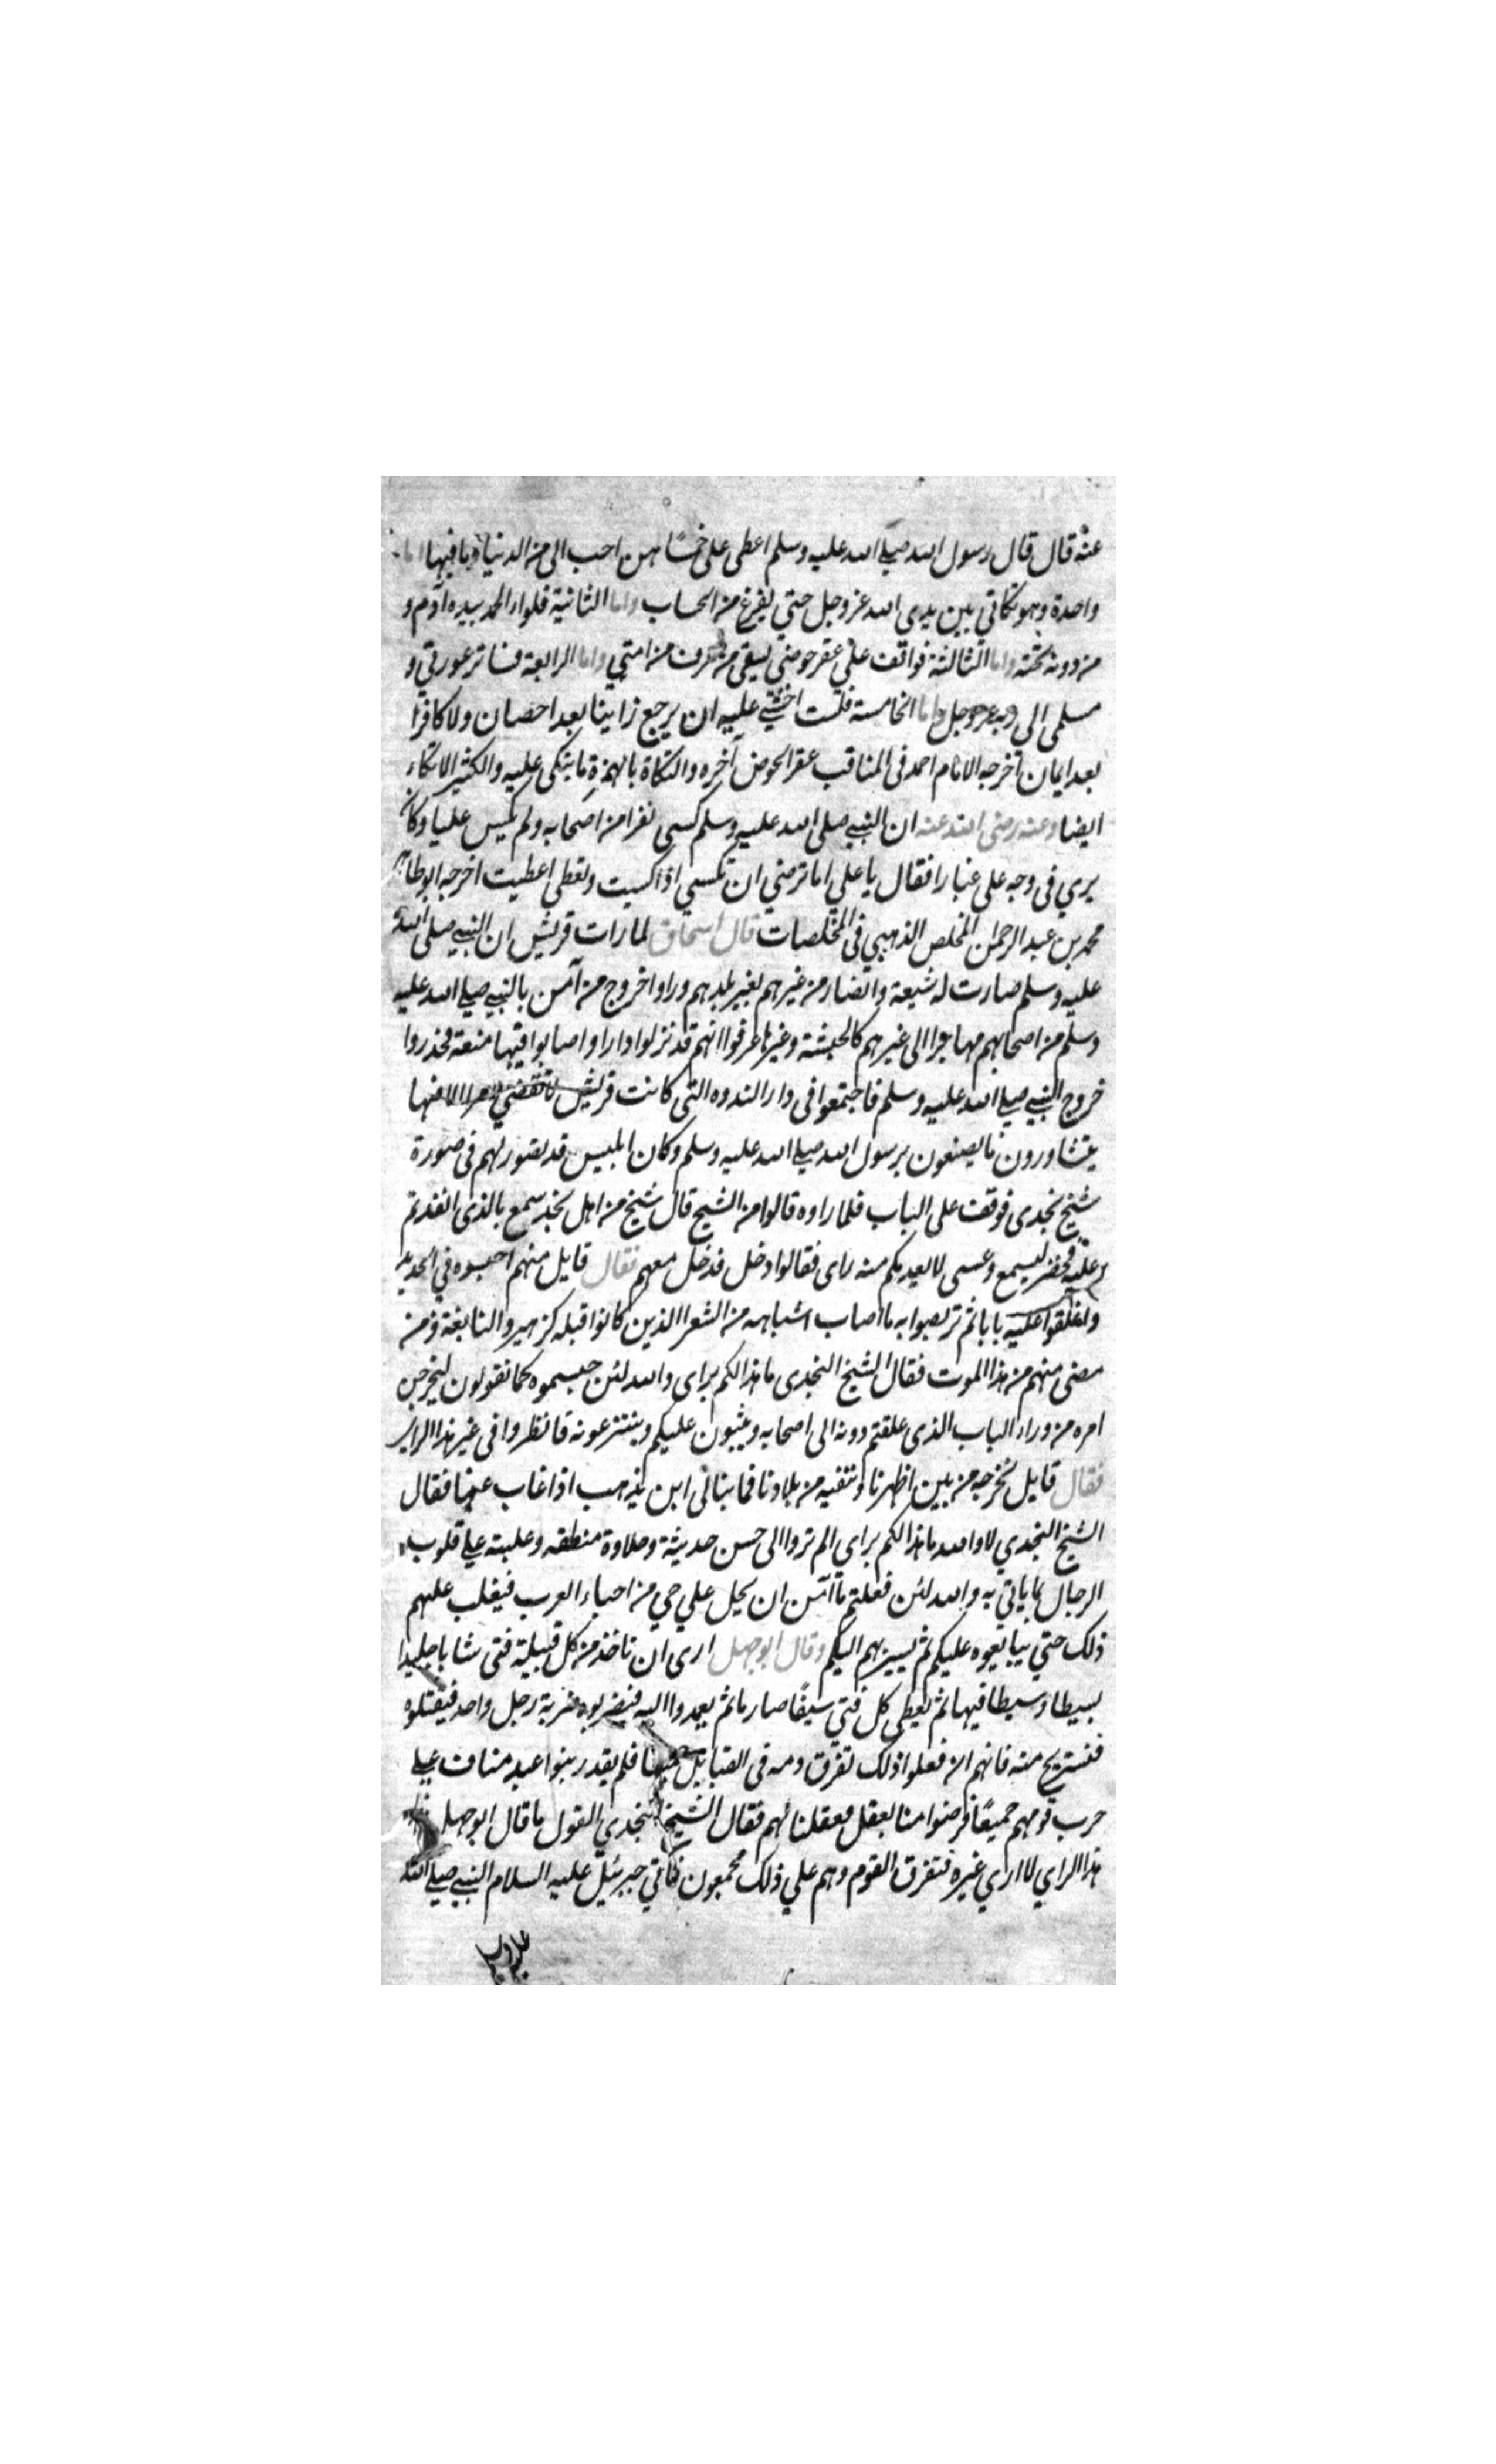 عنه قال قال رسول الله صلى الله عليه وسلم اعطى على خمسًا هن احب الى من الدنيا وما فيها اما
واحدة وهو تكاتي بين يدى الله عز وجل حتي يفرغ من الحساب واما الثانية فلواء الحمد بيده آدم و
من دونه تحته واما الثالثة فواقف علي عقر حوضي يسقى من عرف من امتي واما الرابعة فساتر عورتي و
مسلمى الى ربه عز وجل واما الخامسة فلست اخشي عليه ان يرجع زانيا بعد احصان ولا كافرا
بعد ايمان اخرجه الامام احمد فى المناقب عقر الحوض آخره والتكاة بالهمزة ما يتكى عليه والكثير الاتكاء
ايضا وعنه رضى الله عنه ان النبي صلى الله عليه وسلم كسى نفرا من اصحابه ولم يكس عليا وكان
يري فى وجه على غبارا فقال يا علي اما ترضي ان تكسي اذا كسيت وتعطى اعطيت اخرجه ابو طاهر
محمد بن عبد الرحمن المخلص الذهبي في المخلصات قال اسحاق لما رات قريش ان النبي صلى الله
عليه وسلم صارت له شيعة وانصار من غيرهم بغير بلدهم وراوا خروج من آمن بالنبي صلى الله عليه
وسلم من اصحابهم مهاجرا الى غيرهم كالحبشة وغيرها عرفوا انهم قد نزلوا دارا واصابوا فيها منعة فحذروا
خروج النبي صلى الله عليه وسلم فاجتمعوا فى دار الندوه التى كانت قريش لا تقضي امرا الا فيها
يتشاورون ما يصنعون برسول الله صلى الله عليه وسلم وكان ابليس قد تصور لهم فى صورة
شيخ نجدى فوقف على الباب فلما راوه قالوا من الشيخ قال شيخ من اهل نجد سمع بالذى اتعدتم
عليه فحضر ليسمع وعسى لا يعدمكم منه راى فقالوا ادخل فدخل معهم فقال قايل منهم احبسوه في الحديد
واغلقوا عليه بابا ثم تربصوا به ما اصاب اشباهه من الشعرا الذين كانوا قبله كزهير والنابغة ومن
مضى منهم من هذا الموت فقال الشيخ النجدى ما هذا لكم براى والله لئن حبستموه كما تقولون ليخرجن
امره من وراء الباب الذى غلقتم دونه الى اصحابه ويثبون عليكم وينتزعونه فانظروا فى غير هذا الراى
فقال قايل نخرجه من بين اظهرنا وننفيه من بلادنا فما بنالى اين يذهب اذا غاب عنها فقال
الشيخ النجدي لا والله ما هذا لكم براي الم تروا الى حسن حديثة وحلاوة منطقه وغلبته على قلوب
الرجال بما ياتي به والله لئن فعلتم ما آمن ان يحل علي حي من احياء العرب فيغلب عليهم
ذلك حتي يبايعوه عليكم ثم يسير بهم اليكم وقال ابو جهل ارى ان تاخذ من كل قبيلة فتى شابا جليدا
بسيطا وسيطا فيها ثم يعطى كل فتي سيفًا صارما ثم يعمدوا اليه فيضربوه ضربة رجل واحد فيقتلوه
فنستريح منه فانهم ان فعلوا ذلك تفرق دمه فى القبايل فلم يقدر بنوا عبد مناف على
حرب قومهم جميعًا فرضوا منا بعقل فعقلنا لهم فقال الشيخ النجدي القول ما قال ابو جهل
هذا الراي لا اري غيره فتفرق القوم وهم علي ذلك مجمعون فاتي جبرئيل عليه السلام النبي صلى الله
عليه وسلم